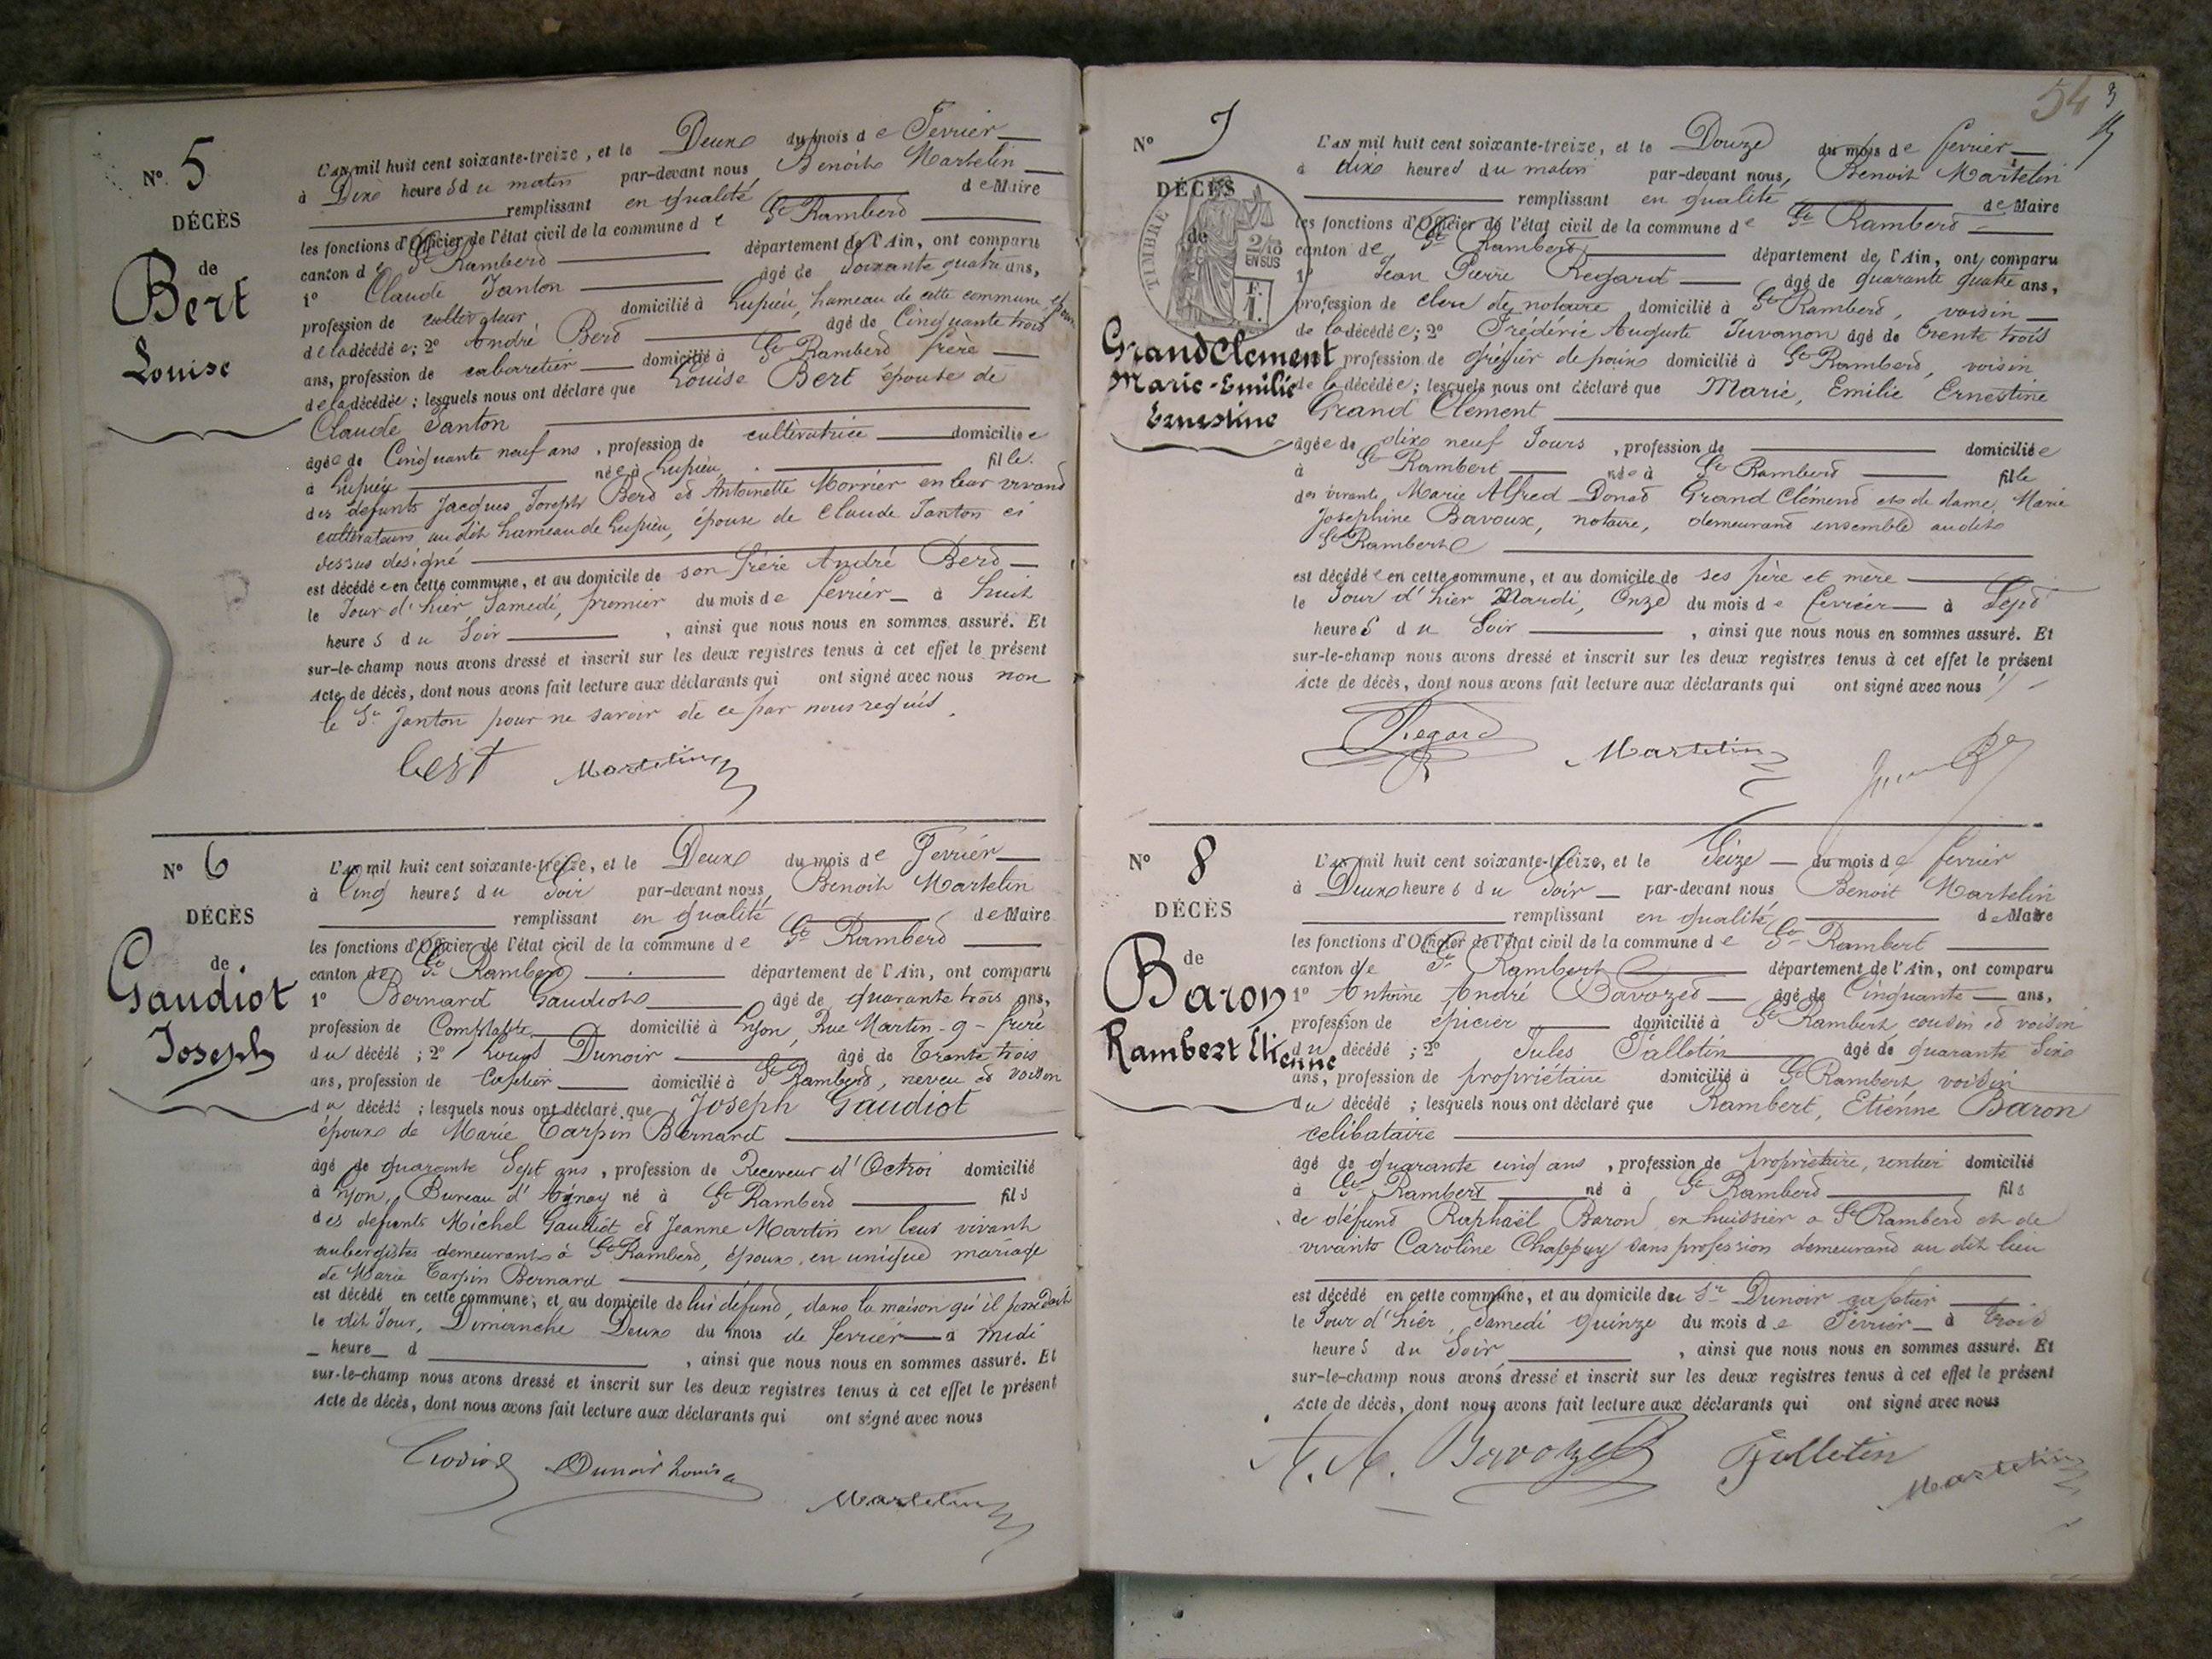 N° 5
DÉCÈS
de
Bert
Louise
L'AN mil huit cent soixante-treize, et le Deux du mois de Fevrier
à Dix heures du matin par-devant nous Benoit Martelin
remplissant en qualité de Maire
les fonctions d'Officier de l'état civil de la commune de St Rambert
canton de St Rambert département de l'Ain, ont comparu
1° Claude Janton âgé de Soixante quatre ans,
profession de cultivateur domicilié à Lupieu, hameau de cette commune,
de la décédée; 2° André Bert âgé de Cinquante trois
ans, profession de cabaretier domicilié à St Rambert frère
de la décédée; lesquels nous ont déclaré que Louise Bert épouse de
Claude Janton
âgée de Cinquante neuf ans, profession de cultivatrice domiciliée
à Lupieu née à Lupieu fille
des defunts Jacques Joseph Bert et Antoinette Morrier en leur vivant
cultivateurs au dit hameau de Lupieu, épouse de Claude Janton ci
dessus designé
est décédée en cette commune, et au domicile de son frère André Bert
le Jour d'hier, Samedi, premier du mois de fevrier à huit
heures du Soir, ainsi que nous nous en sommes assuré. Et
sur-le-champ nous avons dressé et inscrit sur les deux registres tenus à cet effet le présent
Acte de décès, dont nous avons fait lecture aux déclarants qui ont signé avec nous non
le Sr Janton pour ne savoir de ce par nous requis.
Bert Martelin
N° 6
DÉCÈS
de
Gaudiot
Joseph
L'AN mil huit cent soixante-treize, et le Deux du mois de Fevrier
à Cinq heures du Soir par-devant nous, Benoit Martelin
remplissant en qualité de Maire
les fonctions d'Officier de l'état civil de la commune de St Rambert
canton de St Rambert département de l'Ain, ont comparu
1° Bernard Gaudiot âgé de quarante trois ans,
profession de Comptable domicilié à Lyon, Rue Martin - 9 - frère
du décédé; 2° Louis Dunoir âgé de Trente trois
ans, profession de Cafetier domicilié à St Rambert, neveu et voisin
du décédé; lesquels nous ont déclaré que Joseph Gaudiot
époux de Marie Tarpin Bernard
âgé de quarante Sept ans, profession de Receveur d'Octroi domicilié
à Lyon, Bureau d'Ainay né à St Rambert fils
des defunts Michel Gaudiot et Jeanne Martin en leur vivant
aubergistes demeurants à St Rambert, époux en unique mariage
de Marie Tarpin Bernard
est décédé en cette commune, et au domicile de lui défunt, dans la maison qu'il possedait
le dit Jour, Dimanche Deux du mois de fevrier à midi
heure d, ainsi que nous nous en sommes assuré. Et
sur-le-champ nous avons dressé et inscrit sur les deux registres tenus à cet effet le présent
Acte de décès, dont nous avons fait lecture aux déclarants qui ont signé avec nous
Dunoir Louis Martelin
54
N° 7
DÉCÈS
de
TIMBRE
2/10
EN SUS
F.
1.
Grand Clement
Marie-Emilie
Ernestine
L'AN mil huit cent soixante-treize, et le Douze du mois de fevrier
à dix heures du matin par-devant nous, Benoit Martelin
remplissant en qualité de Maire
les fonctions d'Officier de l'état civil de la commune de St Rambert
canton de St Rambert département de l'Ain, ont comparu
1° Jean Pierre Regard âgé de quarante quatre ans,
profession de clerc de notaire domicilié à St Rambert, voisin
de la décédée; 2° Fréderic Auguste Juvanon âgé de trente trois
profession de greffier de paix domicilié à St Rambert, voisin
de la décédée; lesquels nous ont déclaré que Marie, Emilie Ernestine
Grand Clement
âgée de dix neuf Jours, profession de domiciliée
à St Rambert née à St Rambert fille
des vivants Marie Alfred Donat Grand Clément et de dame Marie
Josephine Bavoux, notaire, demeurant ensemble audit
St Rambert
est décédée en cette commune, et au domicile de ses père et mère
le Jour d'hier Mardi, Onze du mois de fevrier à Sept
heures du Soir, ainsi que nous nous en sommes assuré. Et
sur-le-champ nous avons dressé et inscrit sur les deux registres tenus à cet effet le présent
Acte de décès, dont nous avons fait lecture aux déclarants qui ont signé avec nous
Regard Martelin
N° 8
DÉCÈS
de
Baron
Rambert Etienne
L'AN mil huit cent soixante-treize, et le Seize du mois de fevrier
à Deux heures du Soir par-devant nous Benoit Martelin
remplissant en qualité de Maire
les fonctions d'Officier de l'état civil de la commune de St Rambert
canton de St Rambert département de l'Ain, ont comparu
1° Antoine André Bavozet âgé de Cinquante ans,
profession de épicier domicilié à St Rambert cousin et voisin
du décédé; 2° Jules Falletin âgé de quarante Six
ans, profession de propriétaire domicilié à St Rambert voisin
du décédé; lesquels nous ont déclaré que Rambert, Etienne Baron
celibataire
âgé de quarante cinq ans, profession de propriétaire, rentier domicilié
à St Rambert né à St Rambert fils
de défunt Raphaël Baron ex huissier a St Rambert et de
vivante Caroline Chappuy sans profession demeurant au dit lieu
est décédé en cette commune, et au domicile du Sr Dunoir cafetier
le Jour d'hier, Samedi quinze du mois de Fevrier à trois
heures du Soir, ainsi que nous nous en sommes assuré. Et
sur-le-champ nous avons dressé et inscrit sur les deux registres tenus à cet effet le présent
Acte de décès, dont nous avons fait lecture aux déclarants qui ont signé avec nous
A. A. Bavozet Falletin Martelin